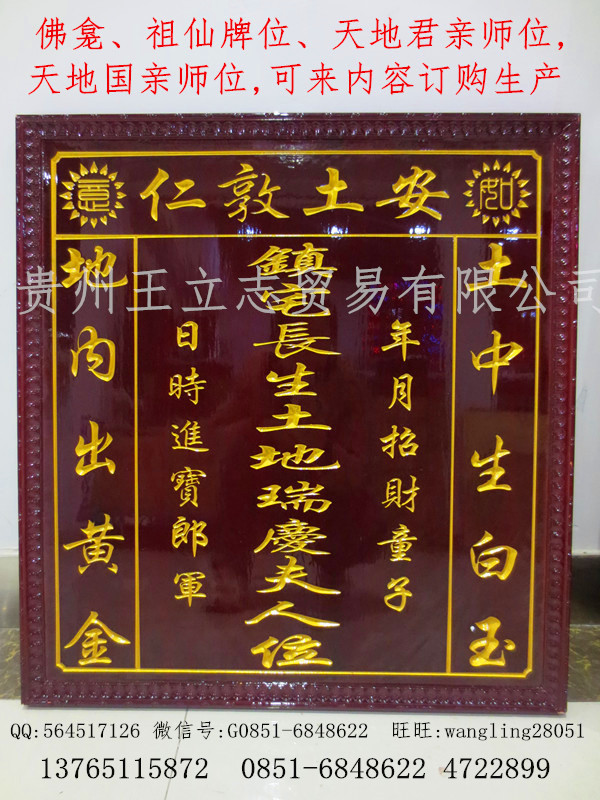 佛龛、祖仙牌位、天地君亲师位,
天地国亲师位,可来内容订购生产
如意
安土敦仁
土中生白玉
年月招財童子
鎮宅長生土地瑞慶夫人位
日時進寶郎軍
地内出黄金
贵州王立志贸易有限公司
QQ:564517126 微信号:G0851-6848622 旺旺:wangling28051
13765115872 0851-6848622 4722899